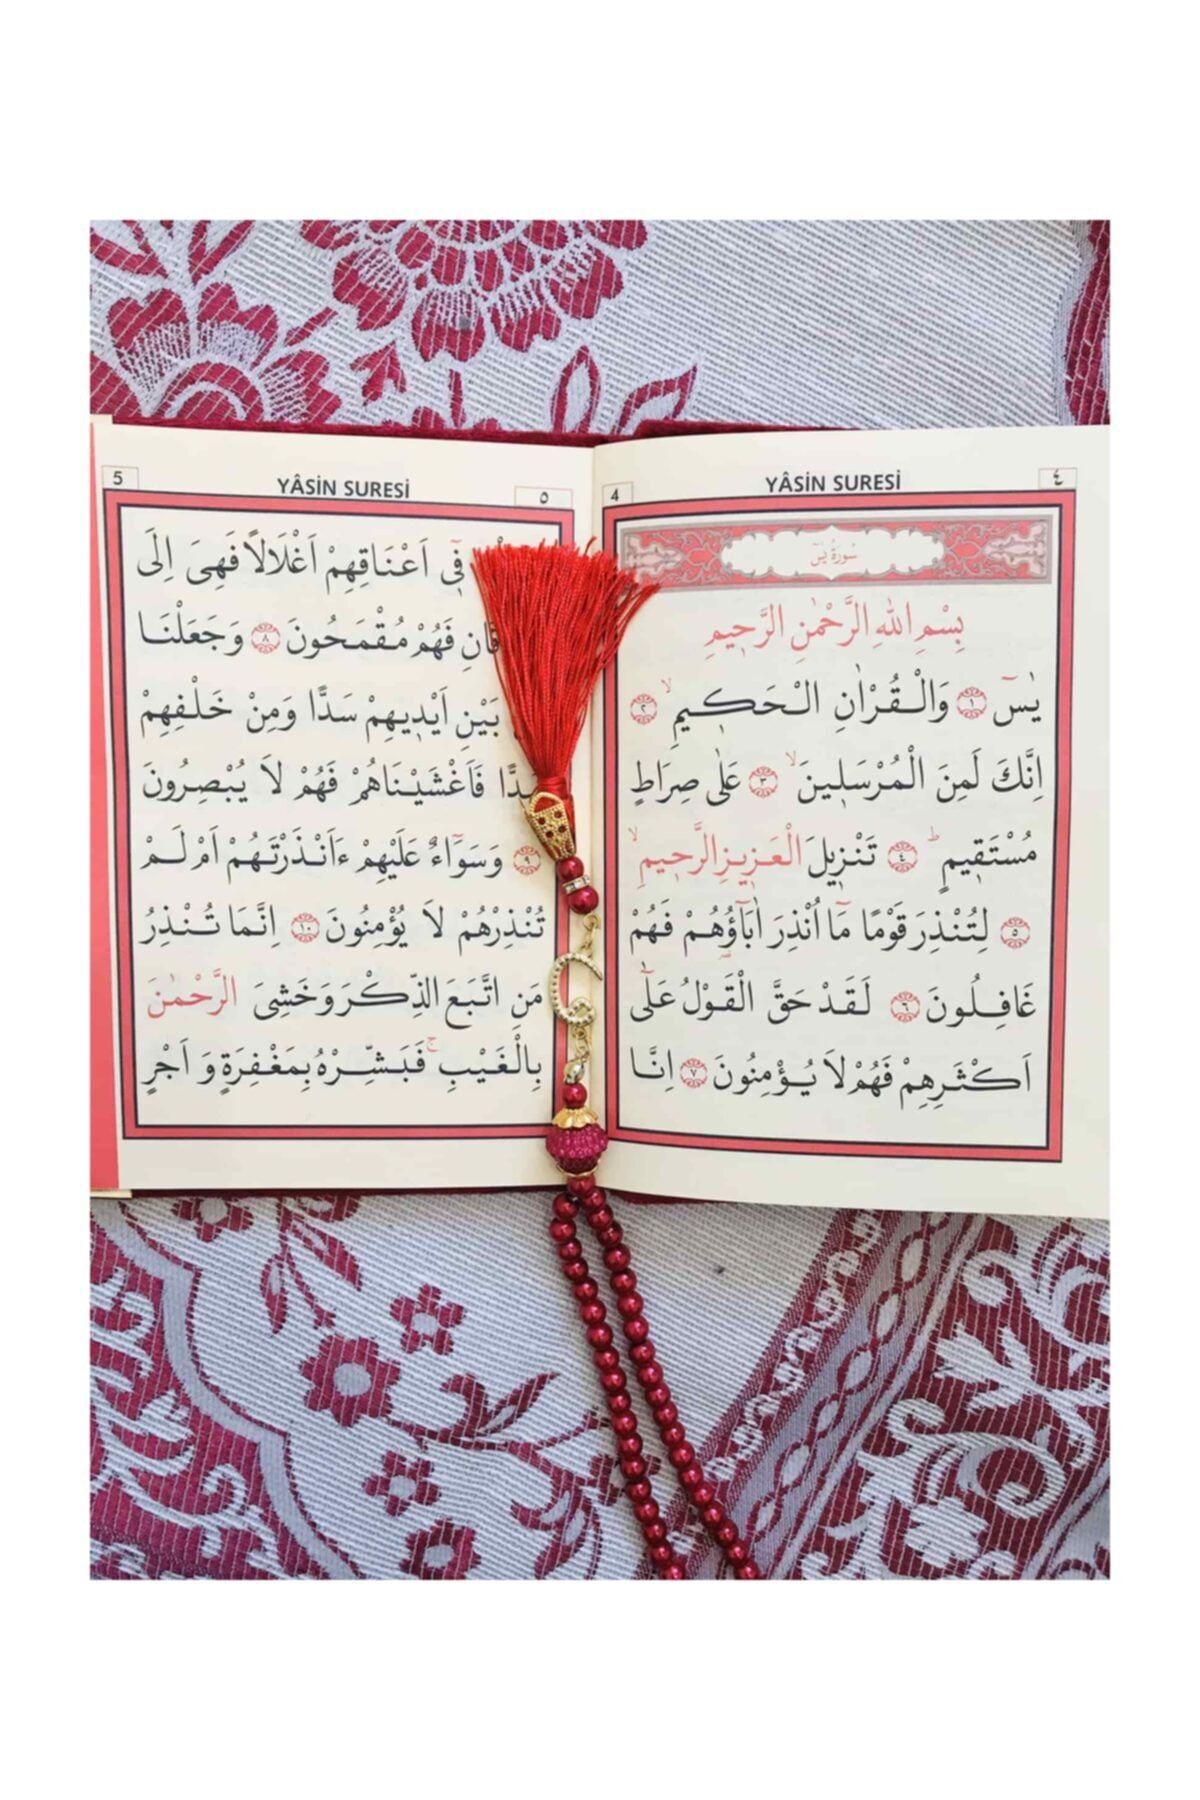 YÂSİN SURESİ
٤
4
سُورَةُ يٰسٓ
بِسْمِ اللهِ الرَّحْمٰنِ الرَّحِيمِ
يٰسٓ ﴿١﴾ وَالْقُرْاٰنِ الْحَكِيمِۙ ﴿٢﴾
اِنَّكَ لَمِنَ الْمُرْسَلِينَۙ ﴿٣﴾ عَلٰى صِرَاطٍ
مُسْتَقِيمٍۜ ﴿٤﴾ تَنْزِيلَ الْعَزِيزِ الرَّحِيمِۙ
﴿٥﴾ لِتُنْذِرَ قَوْمًا مَٓا اُنْذِرَ اٰبَٓاؤُهُمْ فَهُمْ
غَافِلُونَ ﴿٦﴾ لَقَدْ حَقَّ الْقَوْلُ عَلٰٓى
اَكْثَرِهِمْ فَهُمْ لَا يُؤْمِنُونَ ﴿٧﴾ اِنَّا
5
YÂSİN SURESİ
٥
فِٓي اَعْنَاقِهِمْ اَغْلَالًا فَهِيَ اِلَى
فَهُمْ مُقْمَحُونَ ﴿٨﴾ وَجَعَلْنَا
بَيْنِ اَيْدِيهِمْ سَدًّا وَمِنْ خَلْفِهِمْ
فَاَغْشَيْنَاهُمْ فَهُمْ لَا يُبْصِرُونَ
﴿٩﴾ وَسَوَٓاءٌ عَلَيْهِمْ ءَاَنْذَرْتَهُمْ اَمْ لَمْ
تُنْذِرْهُمْ لَا يُؤْمِنُونَ ﴿١٠﴾ اِنَّمَا تُنْذِرُ
مَنِ اتَّبَعَ الذِّكْرَ وَخَشِيَ الرَّحْمٰنَ
بِالْغَيْبِۚ فَبَشِّرْهُ بِمَغْفِرَةٍ وَاَجْرٍ